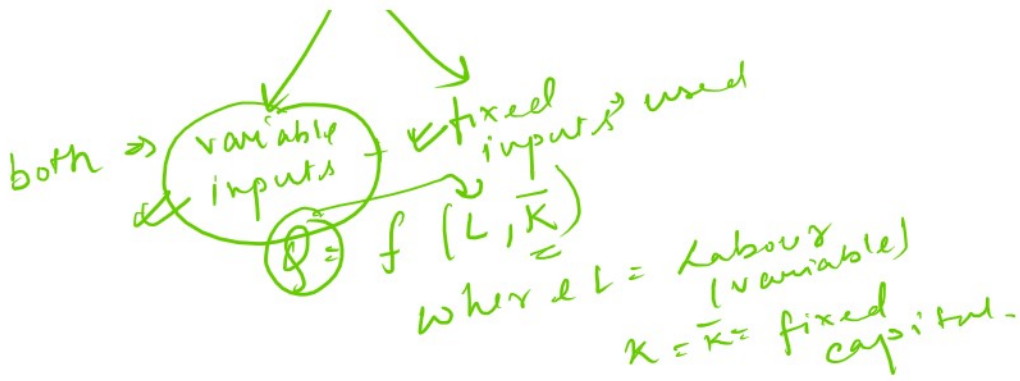 both ⇒ variable inputs - fixed inputs used
Q = f (L, K̅)
where L = Labour (variable)
K = K̅ = fixed capital.